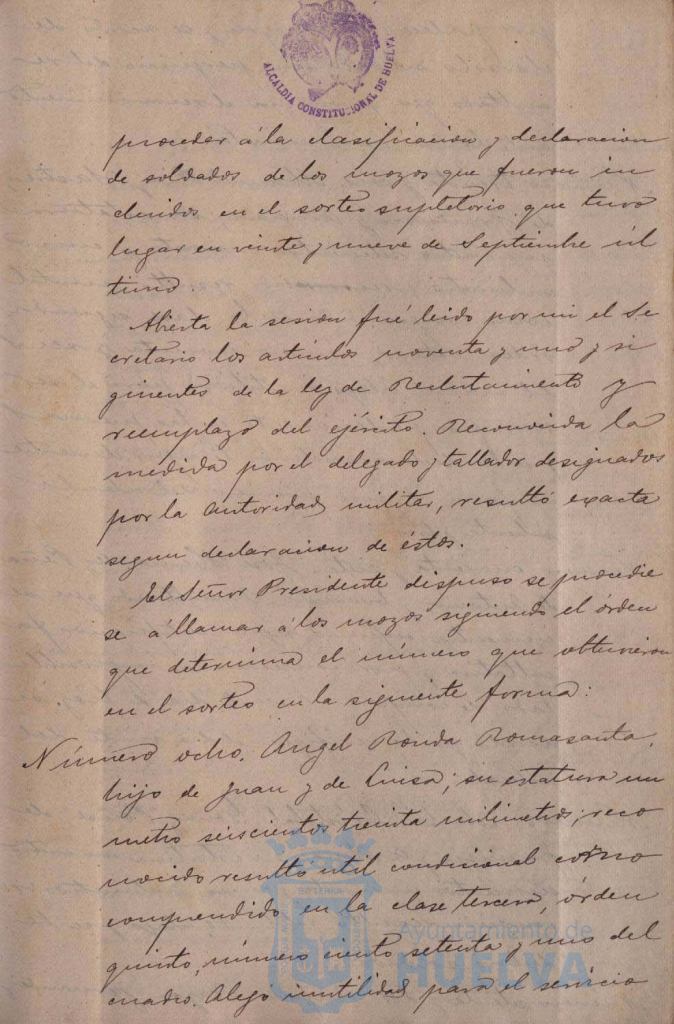 ALCALDIA CONSTITUCIONAL DE HUELVA
proceder á la clasificacion y declaracion
de soldados de los mozos que fueron in
cluidos en el sorteo supletorio que tuvo
lugar en veinte y nueve de Septiembre úl
timo.
Abierta la sesion fué leido por mi el Se
cretario los artículos noventa y uno y si
guientes de la ley de Reclutamiento y
reemplazo del ejército. Reconocida la
medida por el delegado y tallador designados
por la autoridad militar, resultó exacta
segun declaracion de éstos.
El Señor Presidente dispuso se procedie
se á llamar á los mozos siguiendo el órden
que determina el número que obtuvieron
en el sorteo en la siguiente forma:
Número ocho. Angel Ronda Romasanta,
hijo de Juan y de Luisa; su estatura un
metro seiscientos treinta milimetros; reco
nocido resultó util condicional como
comprendido en la clase tercera, órden
quinto, número ciento setenta y uno del
cuadro. Alegó inutilidad para el servicio
Ayuntamiento de
HUELVA